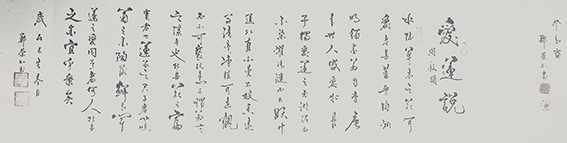 愛蓮説
周敦頤
水陸草木之花可
愛者甚蕃晉陶淵
明獨愛菊自李唐
来世人盛愛牡丹
予獨愛蓮之出淤泥而
不染濯清漣而不妖中
通外直不蔓不枝香遠
益清亭亭淨植可遠觀
而不可褻玩焉予謂菊
花之隱逸者也牡丹花之富
貴者也蓮花之君子者也噫
菊之愛陶後鮮有聞
蓮之愛同予者何人牡丹
之愛宜乎衆矣
歲在己巳春月